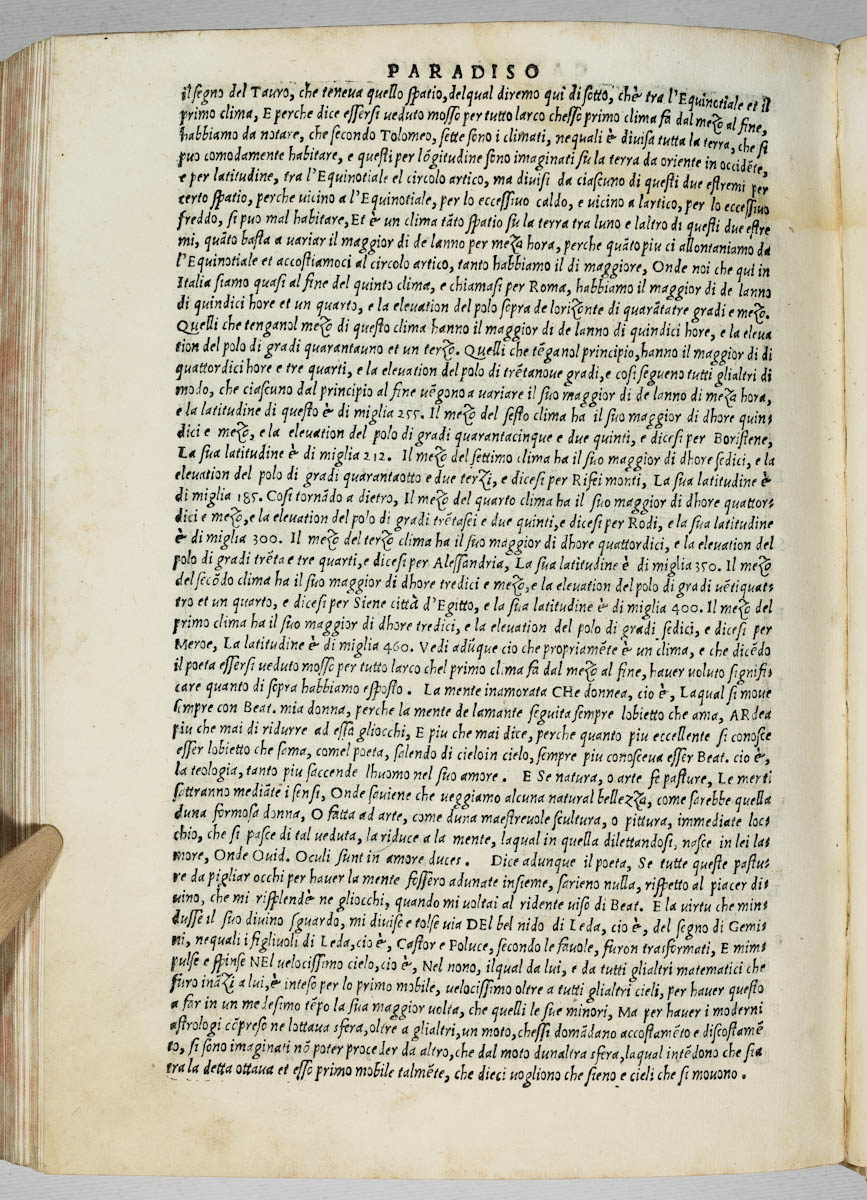 PARADISO
il segno del Tauro, che teneva quello spatio, del qual diremo qui di sotto, ch'è tra l'Equinotiale et il
primo clima, E perche dice essersi veduto mosso per tutto larco chesso primo clima fa dal mezo al fine,
habbiamo da notare, che secondo Tolomeo, sette sono i climati, ne quali è divisa tutta la terra, che si
puo comodamente habitare, e questi per lōgitudine sono imaginati su la terra da oriente in occidēte,
e per latitudine, tra l'Equinotiale el circolo artico, ma divisi da ciascuno di questi due estremi per
certo spatio, perche vicino a l'Equinotiale, per lo eccessivo caldo, e vicino a lartico, per lo eccessivo
freddo, si puo mal habitare, Et è un clima tāto spatio su la terra tra luno e laltro di questi due estre
mi, quāto basta a variar il maggior di de lanno per meza hora, perche quāto piu ci allontaniamo da
l'Equinotiale et accostiamoci al circolo artico, tanto habbiamo il di maggiore, Onde noi che qui in
Italia siamo quasi al fine del quinto clima, e chiamasi per Roma, habbiamo il maggior di de lanno
di quindici hore et un quarto, e la elevation del polo sopra de lorizonte di quarātatre gradi e mezo.
Quelli che tenganol mezo di questo clima hanno il maggior di de lanno di quindici hore, e la eleva
tion del polo di gradi quarantauno et un terzo. Quelli che tēganol principio, hanno il maggior di di
quattordici hore e tre quarti, e la elevation del polo di trētanove gradi, e cosi segueno tutti glialtri di
modo, che ciascuno dal principio al fine vēgono a variare il suo maggior di de lanno di meza hora,
e la latitudine di questo è di miglia 255. Il mezo del sesto clima ha il suo maggior di dhore quin-
dici e mezo, e la elevation del polo di gradi quarantacinque e due quinti, e dicesi per Boristene,
La sua latitudine è di miglia 212. Il mezo del settimo clima ha il suo maggior di dhore sedici, e la
elevation del polo di gradi quarantaotto e due terzi, e dicesi per Rifei monti, La sua latitudine è
di miglia 185. Cosi tornādo a dietro, Il mezo del quarto clima ha il suo maggior di dhore quattor-
dici e mezo, e la elevation del polo di gradi trētasei e due quinti, e dicesi per Rodi, e la sua latitudine
è di miglia 300. Il mezo del terzo clima ha il suo maggior di dhore quattordici, e la elevation del
polo di gradi trēta e tre quarti, e dicesi per Alessandria, La sua latitudine è di miglia 350. Il mezo
del secōdo clima ha il suo maggior di dhore tredici e mezo, e la elevation del polo di gradi vētiquat-
tro et un quarto, e dicesi per Siene città d'Egitto, e la sua latitudine è di miglia 400. Il mezo del
primo clima ha il suo maggior di dhore tredici, e la elevation del polo di gradi sedici, e dicesi per
Meroe, La latitudine è di miglia 460. Vedi adūque cio che propriamēte è un clima, e che dicēdo
il poeta essersi veduto mosso per tutto larco chel primo clima fa dal mezo al fine, haver voluto signifi-
care quanto di sopra habbiamo esposto. La mente inamorata CHe donnea, cio è, Laqual si move
sempre con Beat. mia donna, perche la mente de lamante seguita sempre lobietto che ama, ARdea
piu che mai di ridurre ad essa gliocchi, E piu che mai dice, perche quanto piu eccellente si conosce
esser lobietto che sama, comel poeta, salendo di cieloin cielo, sempre piu conosceva esser Beat. cio è,
la teologia, tanto piu saccende lhuomo nel suo amore. E Se natura, o arte fe pasture, Le menti
sattranno mediāte i sensi, Onde saviene che veggiamo alcuna natural bellezza, come sarebbe quella
duna formosa donna, O fatta ad arte, come duna maestrevole scultura, o pittura, immediate loc-
chio, che si pasce di tal veduta, la riduce a la mente, laqual in quella dilettandosi, nasce in lei la-
more, Onde Ovid. Oculi sunt in amore duces. Dice adunque il poeta, Se tutte queste pastu-
re da pigliar occhi per haver la mente fossero adunate insieme, sarieno nulla, rispetto al piacer di-
vino, che mi risplendè ne gliocchi, quando mi voltai al ridente viso di Beat. E la virtu che min-
dusse il suo divino sguardo, mi divise e tolse via DEl bel nido di Leda, cio è, del segno di Gemi-
ni, nequali i figlivoli di Leda, cio è, Castor e Poluce, secondo le favole, furon trasformati, E mim-
pulse e spinse NEl velocissimo cielo, cio è, Nel nono, ilqual da lui, e da tutti glialtri matematici che
furo ināzi a lui, è inteso per lo primo mobile, velocissimo oltre a tutti glialtri cieli, per haver questo
a far in un medesimo tēpo la sua maggior volta, che quelli le sue minori, Ma per haver i moderni
astrologi cōpreso ne lottava sfera, oltre a glialtri, un moto, chessi domādano accostamēto e discostamē
to, si sono imaginati nō poter proceder da altro, che dal moto dunaltra sfera, laqual intēdono che sia
tra la detta ottava et esso primo mobile talmēte, che dieci vogliono che sieno e cieli che si movono.